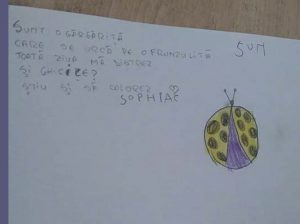 SUNT O GĂRGĂRIȚĂ
CARE SE URCĂ PE O FRUNZULIȚĂ
TOATĂ ZIUA MĂ DISTREZ
ȘI GHICI CE?
ȘTIU ȘI SĂ COLOREZ ♡
SOPHIAC
SUM